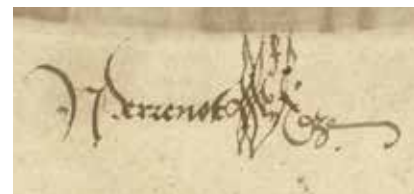 N Perrenot